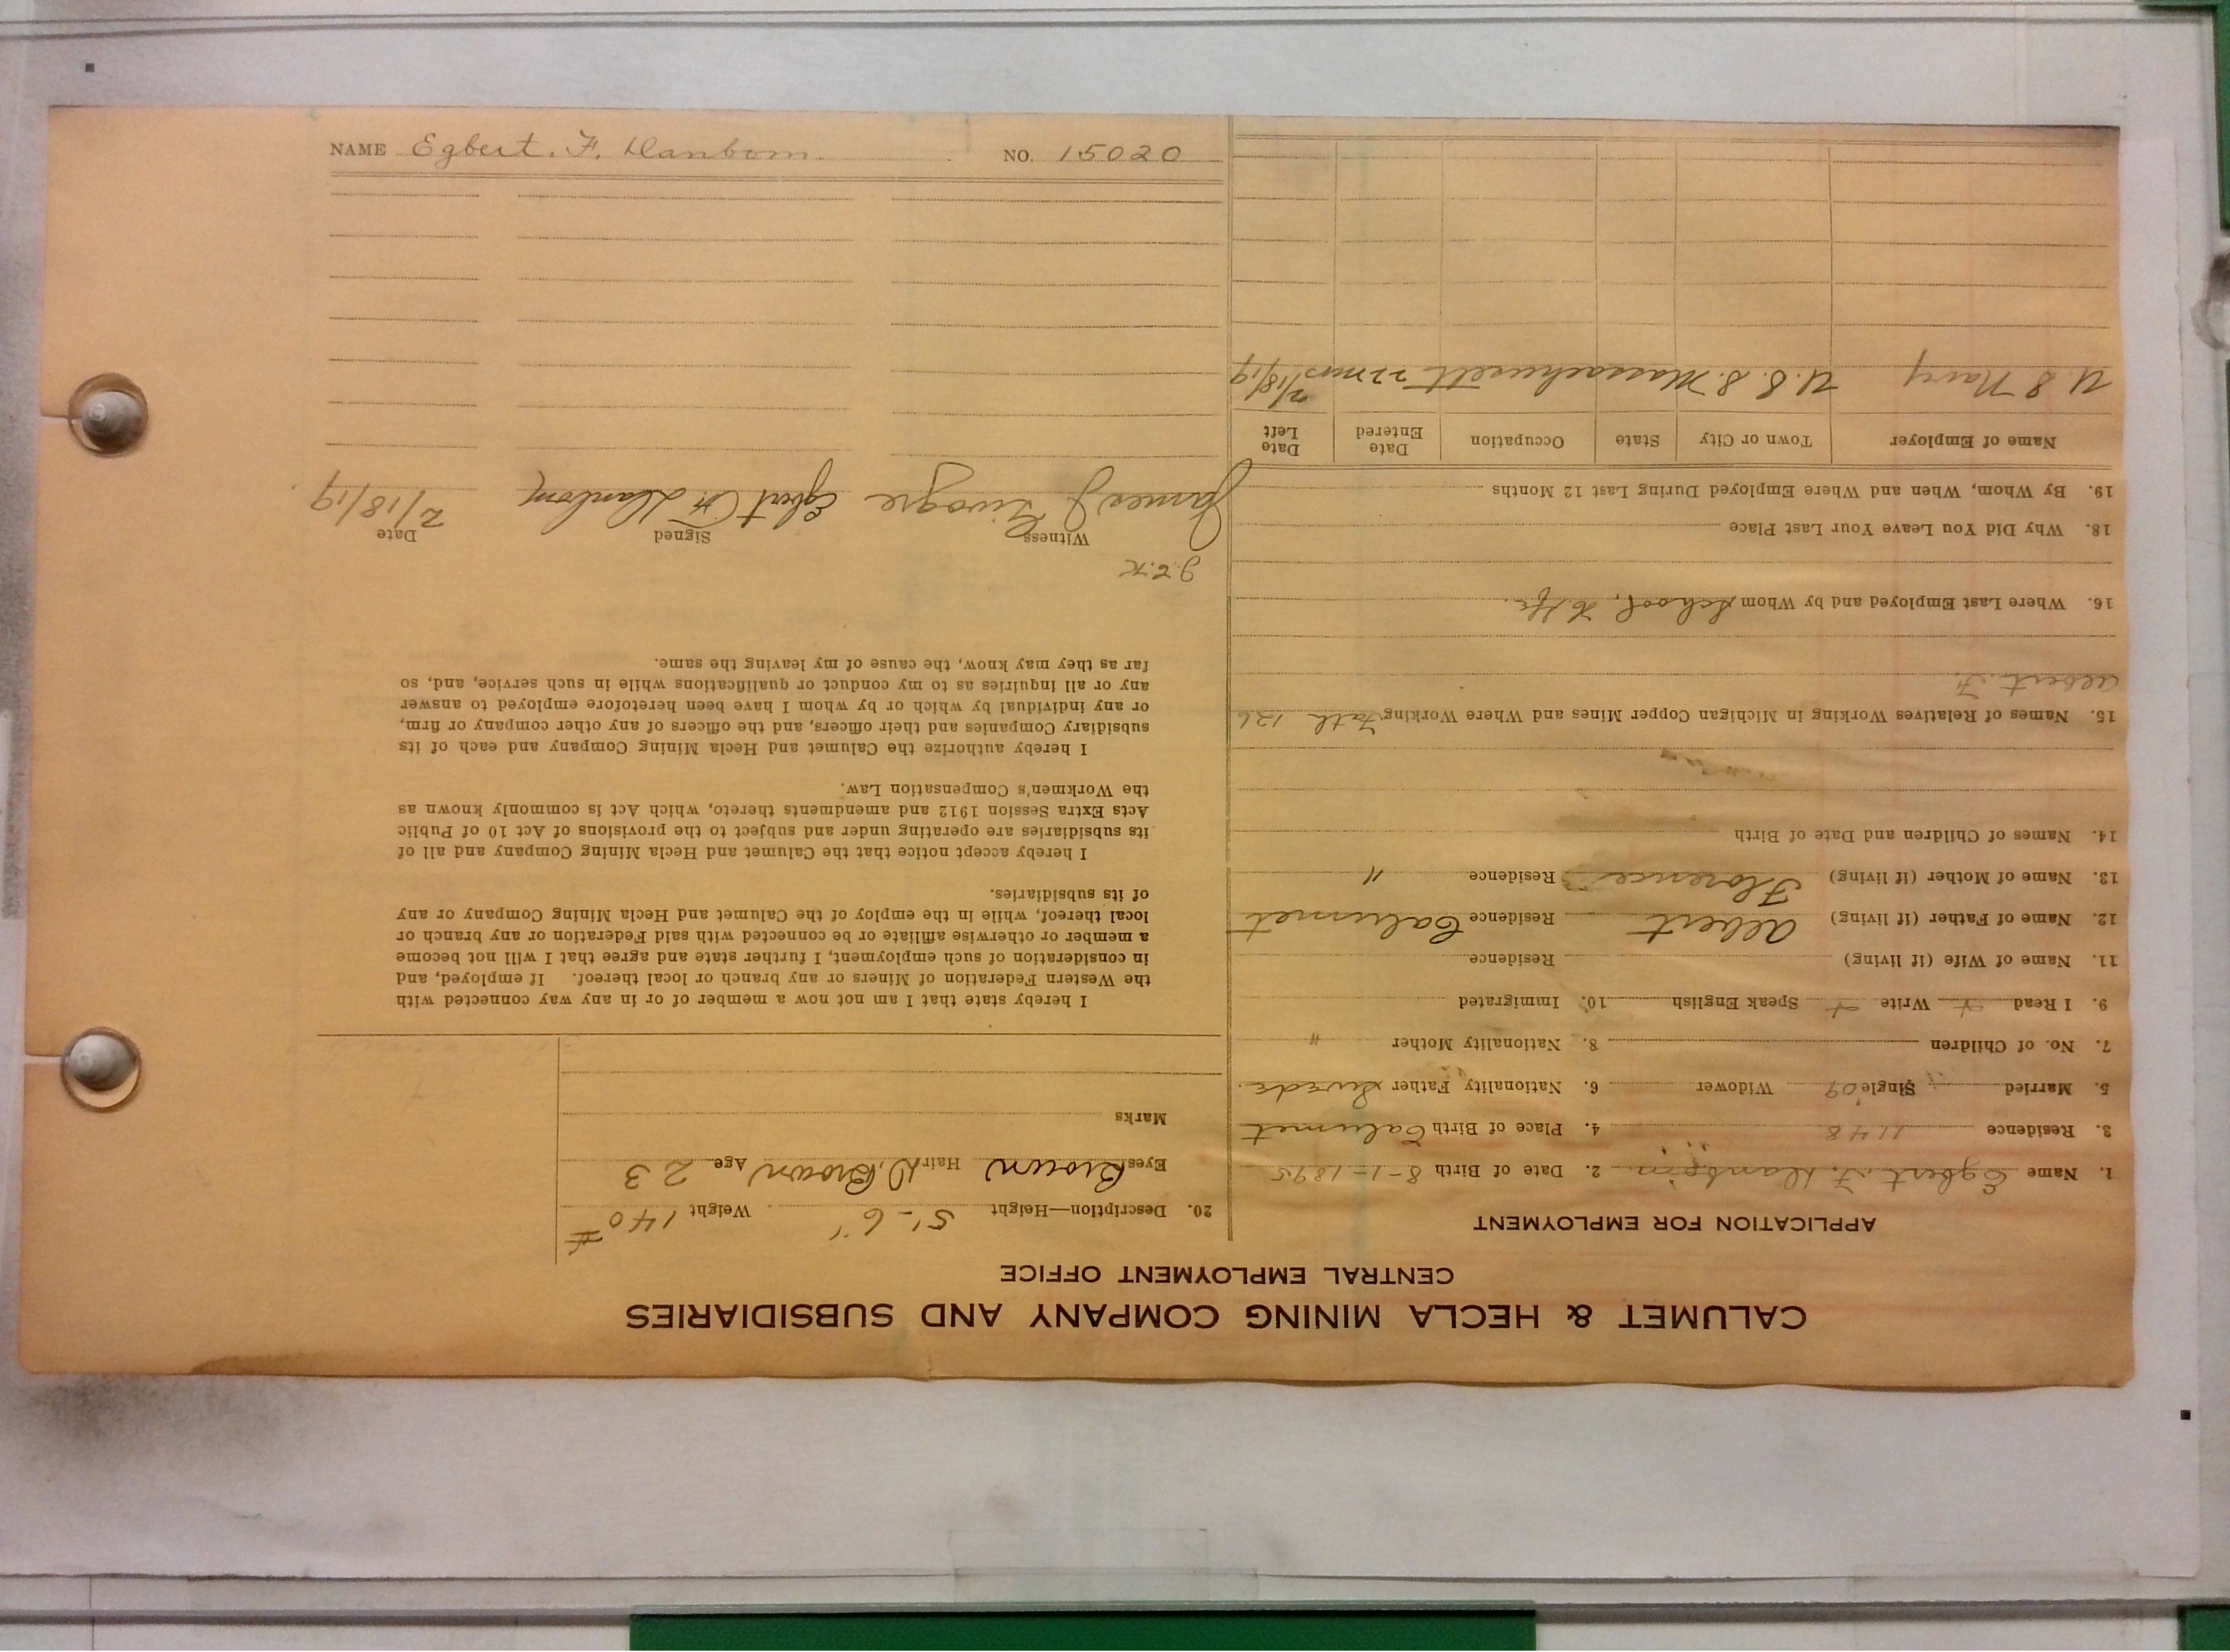 CALUMET & HECLA MINING COMPANY AND SUBSIDIARIES
CENTRAL EMPLOYMENT OFFICE
APPLICATION FOR EMPLOYMENT
1. Name Egbert F. Danbom 2. Date of Birth 8-1-1895
3. Residence 1148 4. Place of Birth Calumet
5. Married Single Widower 6. Nationality Father Swede
7. No. of Children 8. Nationality Mother "
9. I Read Write Speak English 10. Immigrated
11. Name of Wife (if living) Residence
12. Name of Father (if living) Albert Residence Calumet
13. Name of Mother (if living) Florence Residence "
14. Names of Children and Date of Birth
15. Names of Relatives Working in Michigan Copper Mines and Where Working Fath 126
Albert F.
16. Where Last Employed and by Whom School,
18. Why Did You Leave Your Last Place
19. By Whom, When and Where Employed During Last 12 Months
Name of Employer Town or City State Occupation Date Entered Date Left
U S Navy U.S.S. Massachusett 22 mos 2/18/19
20. Description—Height 5'-6" Weight 140#
Eyes Brown Hair D. Brown Age 23
Marks
I hereby state that I am not now a member of or in any way connected with
the Western Federation of Miners or any branch or local thereof. If employed, and
in consideration of such employment, I further state and agree that I will not become
a member or otherwise affiliate or be connected with said Federation or any branch or
local thereof, while in the employ of the Calumet and Hecla Mining Company or any
of its subsidiaries.
I hereby accept notice that the Calumet and Hecla Mining Company and all of
its subsidiaries are operating under and subject to the provisions of Act 10 of Public
Acts Extra Session 1912 and amendments thereto, which Act is commonly known as
the Workmen's Compensation Law.
I hereby authorize the Calumet and Hecla Mining Company and each of its
subsidiary Companies and their officers, and the officers of any other company or firm,
or any individual by which or by whom I have been heretofore employed to answer
any or all inquiries as to my conduct or qualifications while in such service, and, so
far as they may know, the cause of my leaving the same.
Witness Signed Date
James J. Egbert F. Danbom 2/18/19
NAME Egbert. F. Danbom. NO. 15020